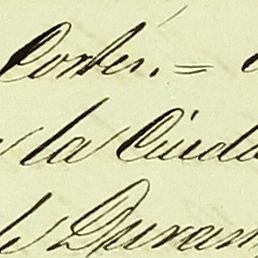 Cortés. =
la Ciuda
de Duran